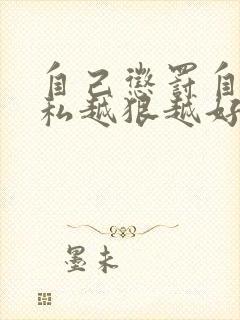 自己惩罚自
私越狠越好
墨未